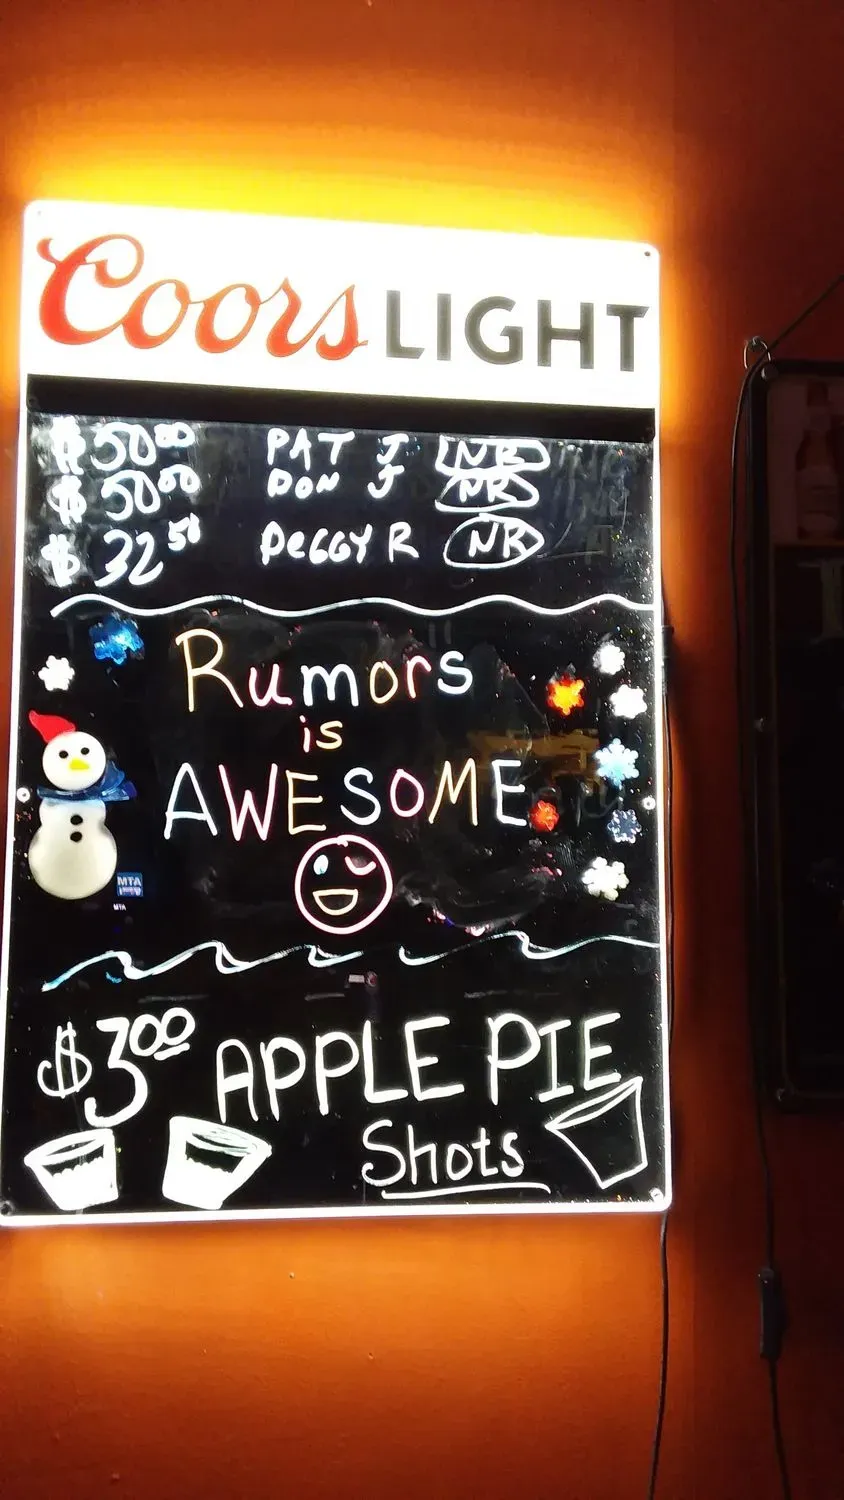 Coors LIGHT
$50.00 PAT J NR
$50.00 DON J NR
$32.50 PEGGY R NR
Rumors
is
AWESOME
MTA
MTA
$3.00 APPLE PIE
Shots